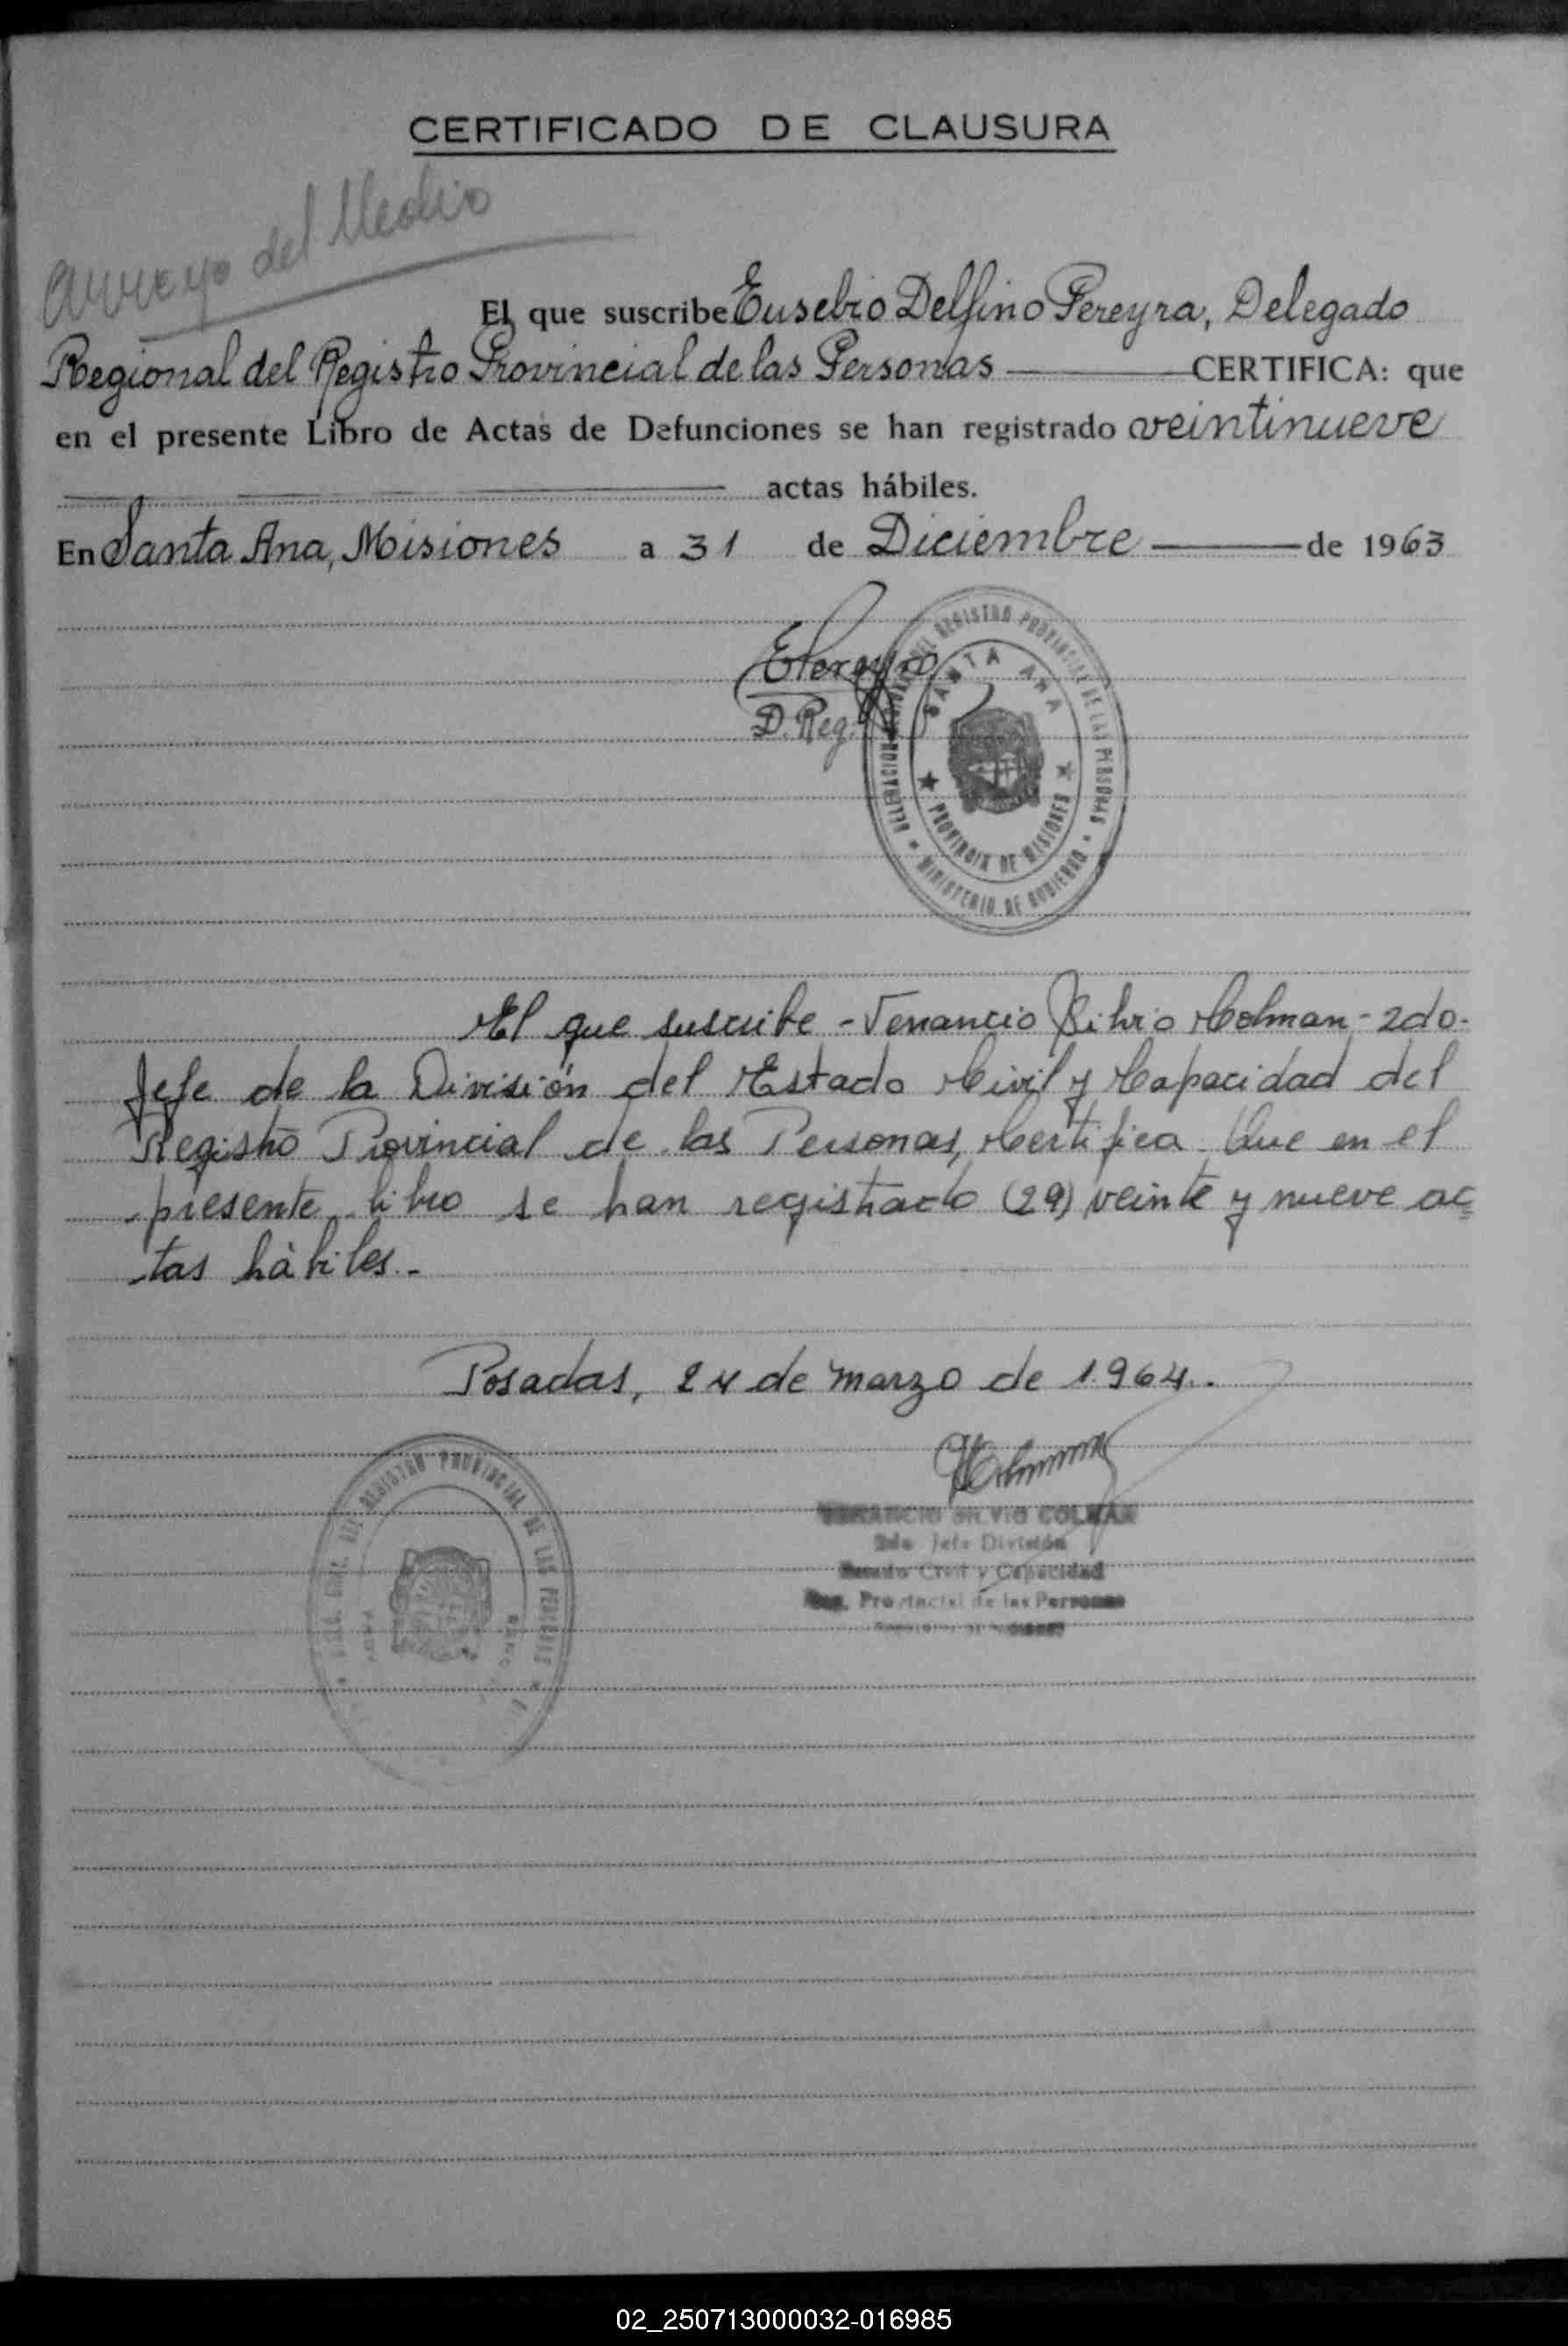 CERTIFICADO DE CLAUSURA
Arroyo del Medio
El que suscribe Eusebio Delfino Pereyra, Delegado
Regional del Registro Provincial de las Personas CERTIFICA: que
en el presente Libro de Actas de Defunciones se han registrado veintinueve
actas hábiles.
En Santa Ana, Misiones a 31 de Diciembre de 1963
EPereyra
D. Reg.
DELEGACION REGIONAL DEL REGISTRO PROVINCIAL DE LAS PERSONAS
SANTA ANA
PROVINCIA DE MISIONES
MINISTERIO DE GOBIERNO
El que suscribe - Venancio Silvio Colman - 2do.
Jefe de la División del Estado Civil y Capacidad del
Registro Provincial de las Personas, Certifica: Que en el
presente libro se han registrado (29) veinte y nueve ac
tas hàbiles.-
Posadas, 24 de marzo de 1964.
DEL REGISTRO PROVINCIAL DE LAS PERSONAS
VENANCIO SILVIO COLMAN
2do Jefe División
Estado Civil y Capacidad
Reg. Provincial de las Personas
02_250713000032-016985